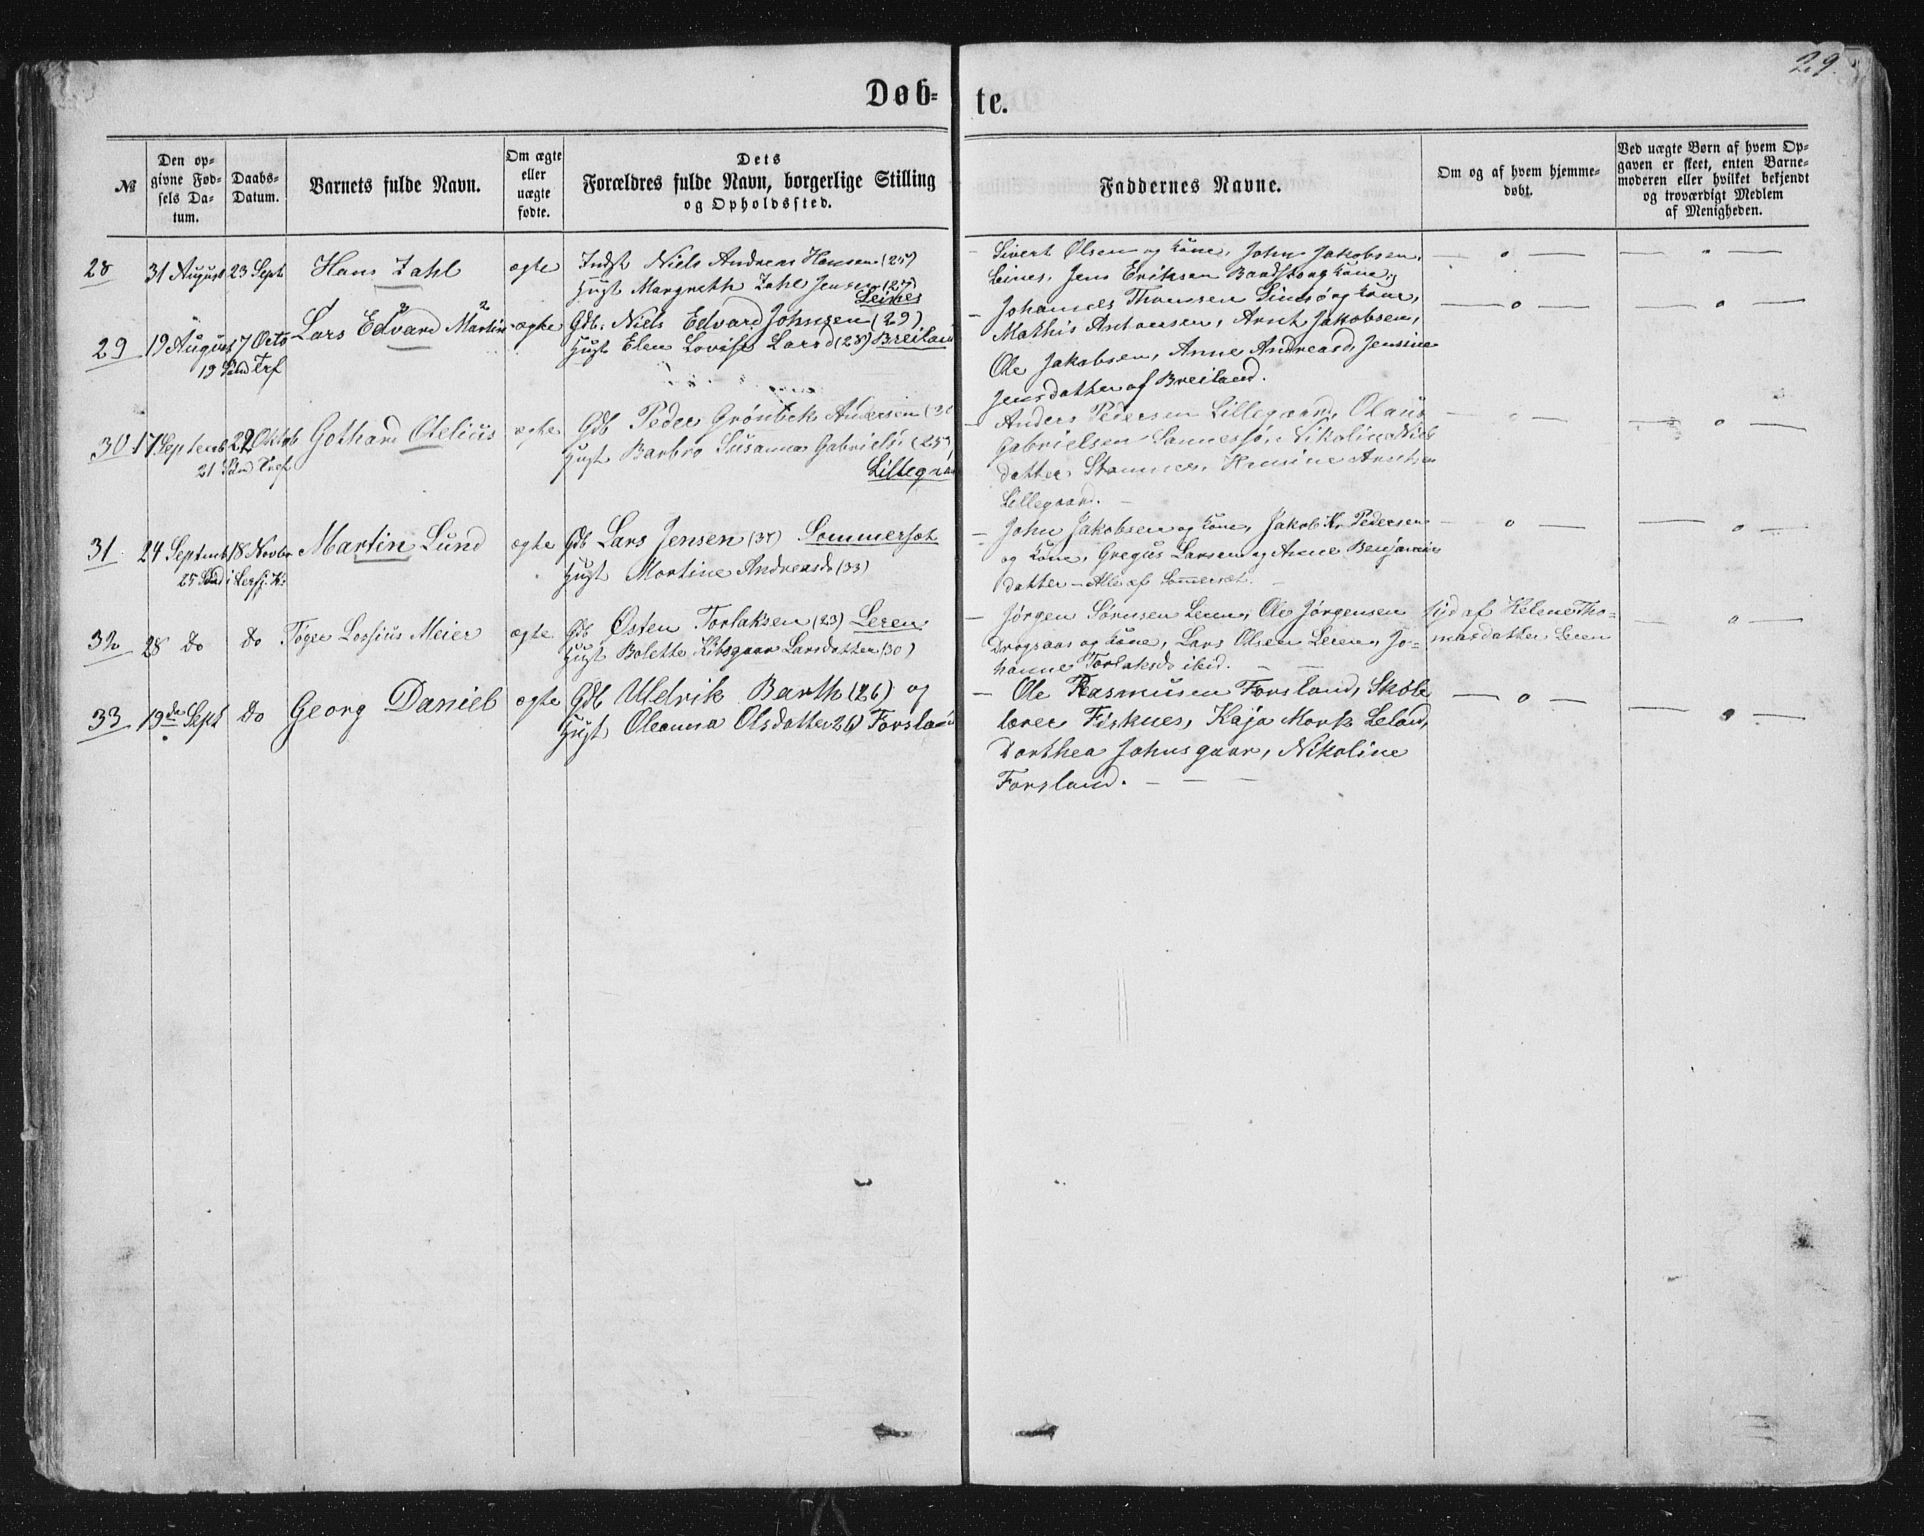 29.
Døb- te.
№
Den op-
givne Fød-
sels Da-
tum.
Daabs-
Datum.
Barnets fulde Navn.
Om ægte
eller
uægte
fødte.
Dets
Forældres fulde Navn, borgerlige Stilling
og Opholdssted.
Faddernes Navne.
Om og af hvem hjemme-
døbt.
Ved uægte Børn af hvem Op-
gaven er skeet, enten Barne-
moderen eller hvilket bekjendt
og troværdigt Medlem
af Menigheden.
28 31 August 23 Sept Hans Zahl ægte Indst Niels Andreas Hansen (25)
Hust Margreth Zahl Jens (27)
Leines
— Sivert Olsen og Kone, John Jakobsen — o — — o —
Leines, Jens Eriksen og Kone,
29 19 August 7 Octo Lars Edvard Martin ægte Gdb. Niels Edvard Johnsen (29)
19 Sønd Tref
Hust Elen Lovise Larsd (28) Breiland
— Johannes Thomsen og Kone, — o — — o —
Mathis Antonsen, Arnt Jakobsen,
Ole Jakobsen, Anne Andreasd, Jensine
Jensdatter af Breiland.
30 17 Septemb 22 Oktob Gothard Otelius ægte Gdb Peder Grönbek Andersen
21 Sønd Tref
Hust Barbro Susanna Gabriels (25)
Lillegaard
— Anders Pedersen Lillegaard, Olaus — o — — o —
Gabrielsen Sannessø, Nikoline Niels
datter Stamnes, Arntsen
Lillegaard. —
31 24 Septemb 18 Novbr Martin Lund ægte Gdb Lars Jensen (37) Sommerset
25 Sønd
Hust Martine Andreasd (33)
— John Jakobsen og Kone, Jakob K. Pedersen — o — — o —
og Kone, Gregus Larsen og Anne Benjamin
datter — Alle af Sommerset.
32 28 do do Töger Losius Meier ægte Gdb Østen Torlaksen (23) Leren
Hust Bolette Kitsgaar Larsdatter (30)
— Jørgen Sørensen Leren, Ole Jørgensen Hjd af Helene Tho- — o —
Drogsaas og Kone, Lars Olsen Leren, Jo- masdatter Leren
hanne Torlaksd ibid. —
33 19de Sept do Georg Daniel ægte Gdb Uldrik Barth (26) og
Hust Oleanna Olsdatter 26) Forsland
— Ole Rasmusen Forsland, Skole — o — — o —
lærer Fisknes, Kaja Mork Leland,
Dorthea Johnsgaar, Nikoline
Forsland. — — —